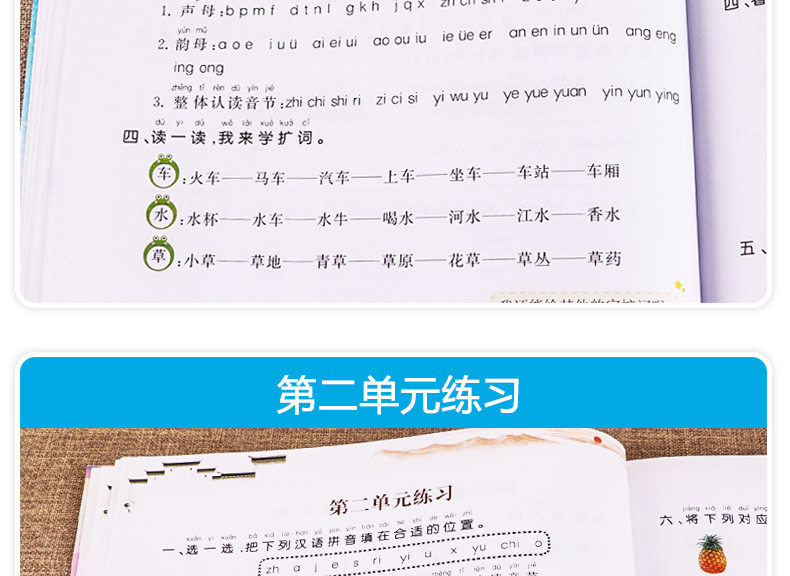 1. 声母:b p m f d t n l g k h j q x
四、
yùn mǔ
2. 韵母:a o e i u ü ai ei ui ao ou iu ie üe er an en in un ün ang eng
ing ong
zhěng tǐ rèn dú yīn jié
3. 整体认读音节:zhi chi shi ri zi ci si yi wu yu ye yue yuan yin yun ying
dú yi dú wǒ lái xué kuò cí
四、读一读,我来学扩词。
车:火车——马车——汽车——上车——坐车——车站——车厢
水:水杯——水车——水牛——喝水——河水——江水——香水
草:小草——草地——青草——草原——花草——草丛——草药
五、
第二单元练习
第二单元练习
一、选一选,把下列汉语拼音填在合适的位置。
zh a j e s ri yi u x yu chi o
六、将下列对应